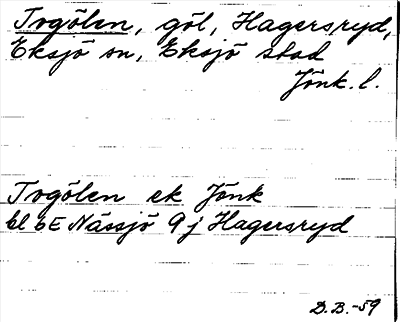 Tvgölen, göl, Hagersryd,
Eksjö sn, Eksjö stad
Jönk. l.
Tvgölen ek Jönk
bl 6E Nässjö 9j Hagersryd
D.B.-59